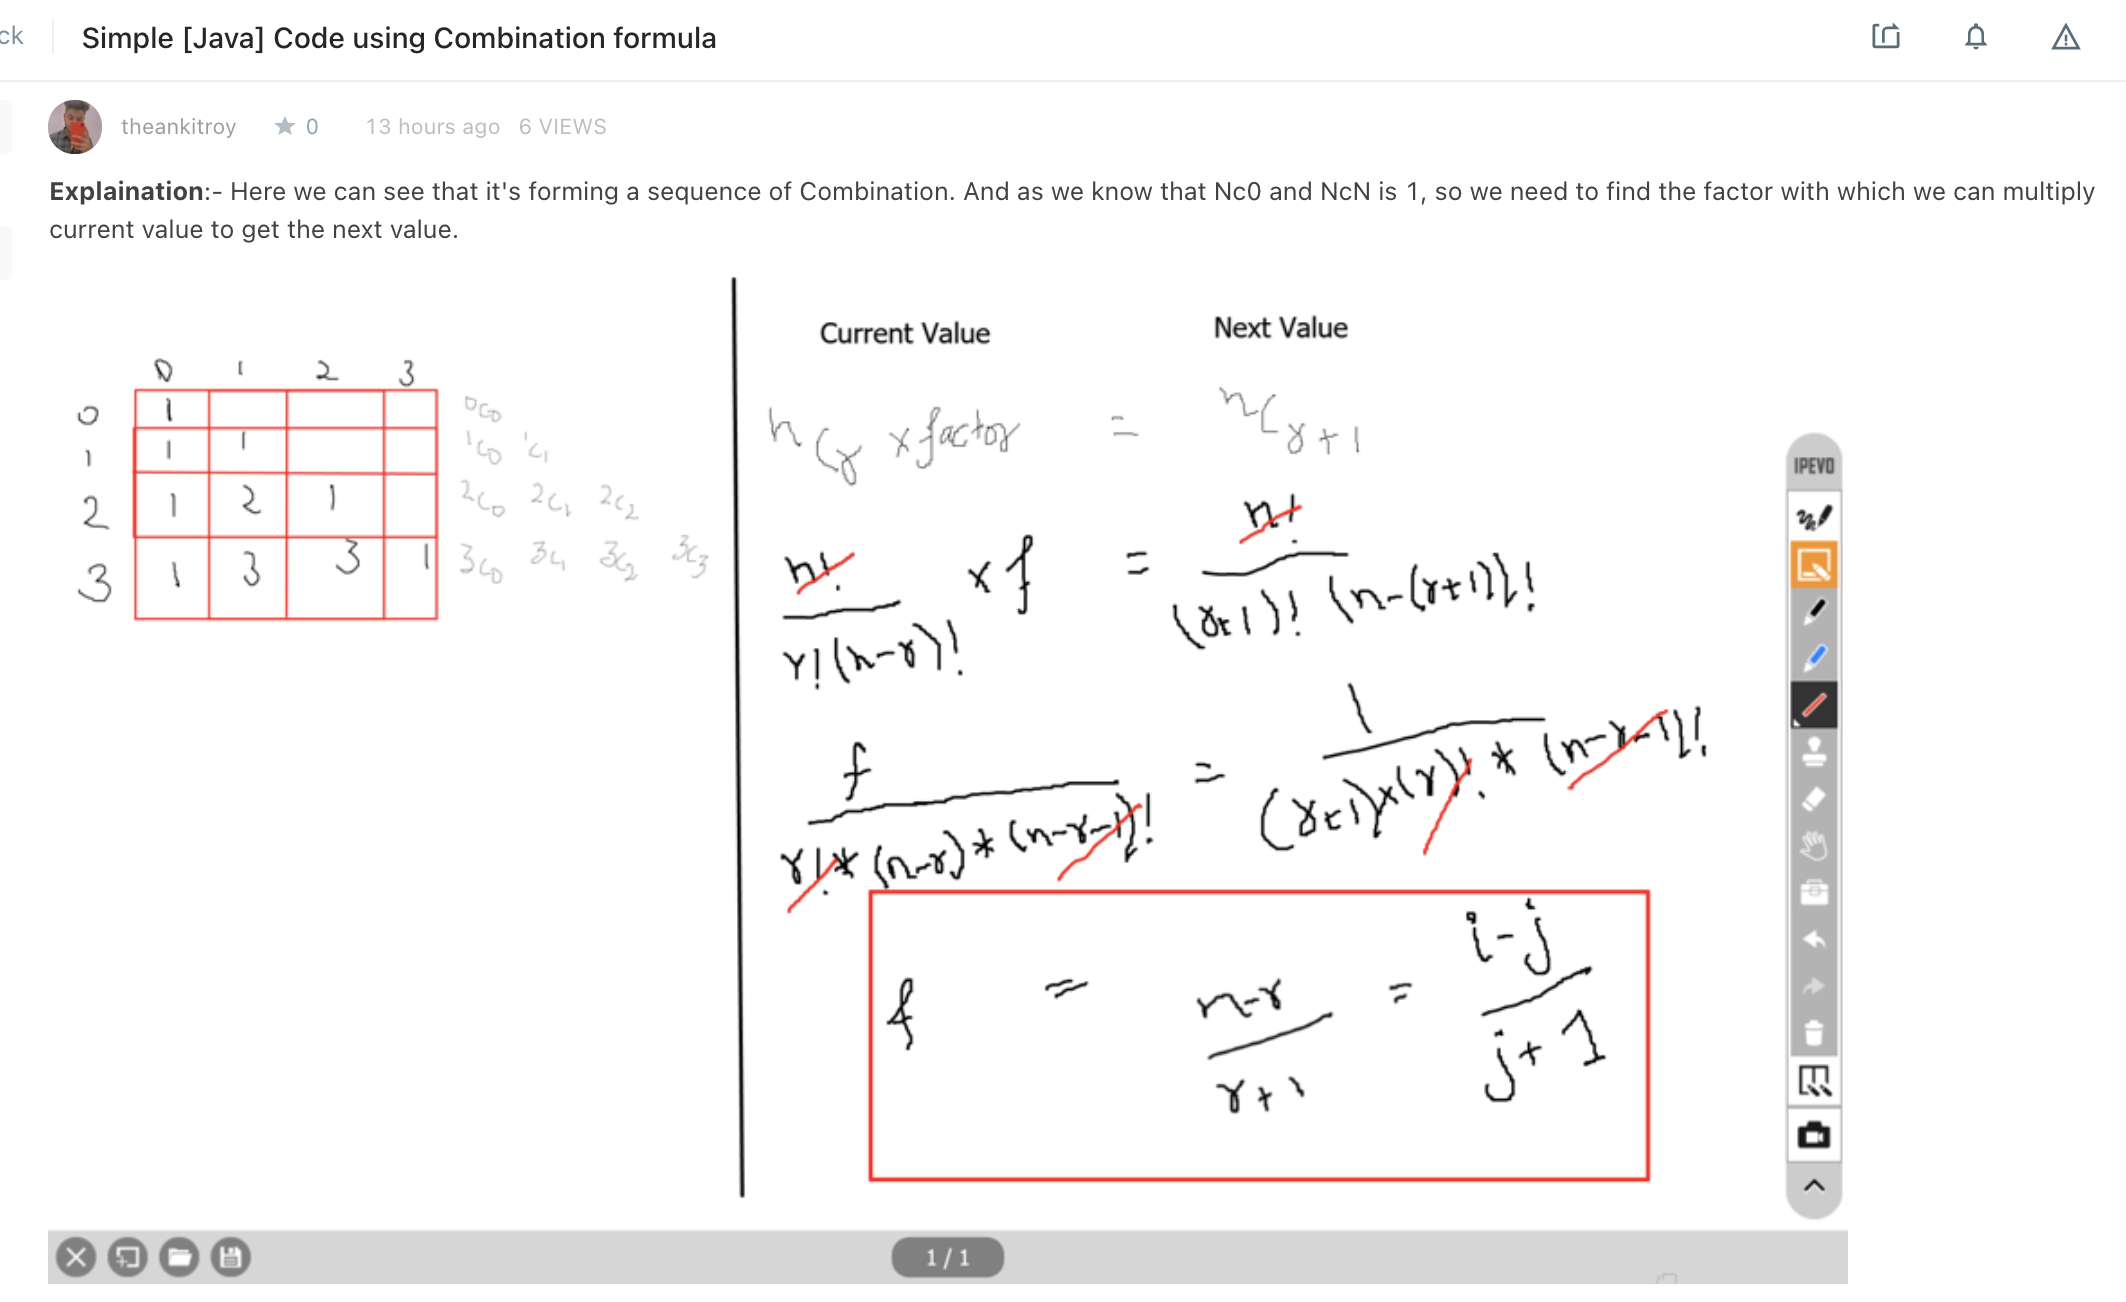 ck
Simple [Java] Code using Combination formula
theankitroy ★ 0 13 hours ago 6 VIEWS
Explaination:- Here we can see that it's forming a sequence of Combination. And as we know that Nc0 and NcN is 1, so we need to find the factor with which we can multiply
current value to get the next value.
0 1 2 3
0 1 0C0
1 1 1 1C0 1C1
2 1 2 1 2C0 2C1 2C2
3 1 3 3 1 3C0 3C1 3C2 3C3
Current Value Next Value
nCr × factor = nCr+1
n! / r!(n-r)! × f = n! / (r+1)! (n-(r+1))!
f / r! * (n-r) * (n-r-1)! = 1 / (r+1)×(r)! * (n-r-1)!
f = n-r / r+1 = i-j / j+1
IPEVO
1 / 1